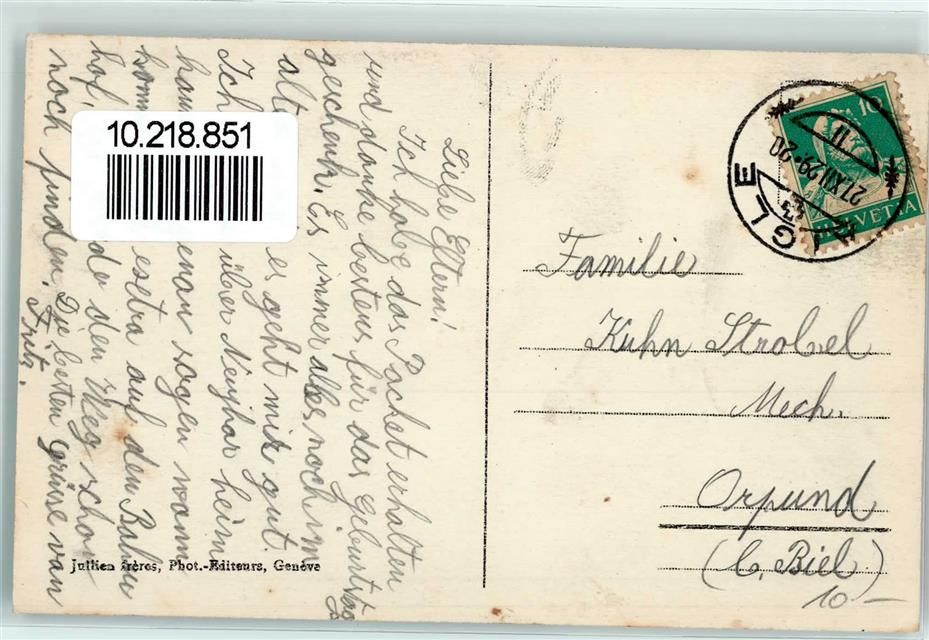 Liebe Eltern!
Ich habe das Packet erhalten
und danke bestens für das Geburtstag
geschenk. Es immer alles noch im
alt es geht mir gut.
Ich über Neujhar heim
kan enau sagen wann
komm extra auf den Bahn
hof. den Weg schon
noch finden. Die besten Grüsse von
Fritz.
10.218.851
Jullien frères, Phot.-Editeurs, Genève
AIGLE
27.XII.29.-20
10
HELVETIA
Familie
Kuhn Strobel
Mech.
Orpund
(b. Biel)
10 —